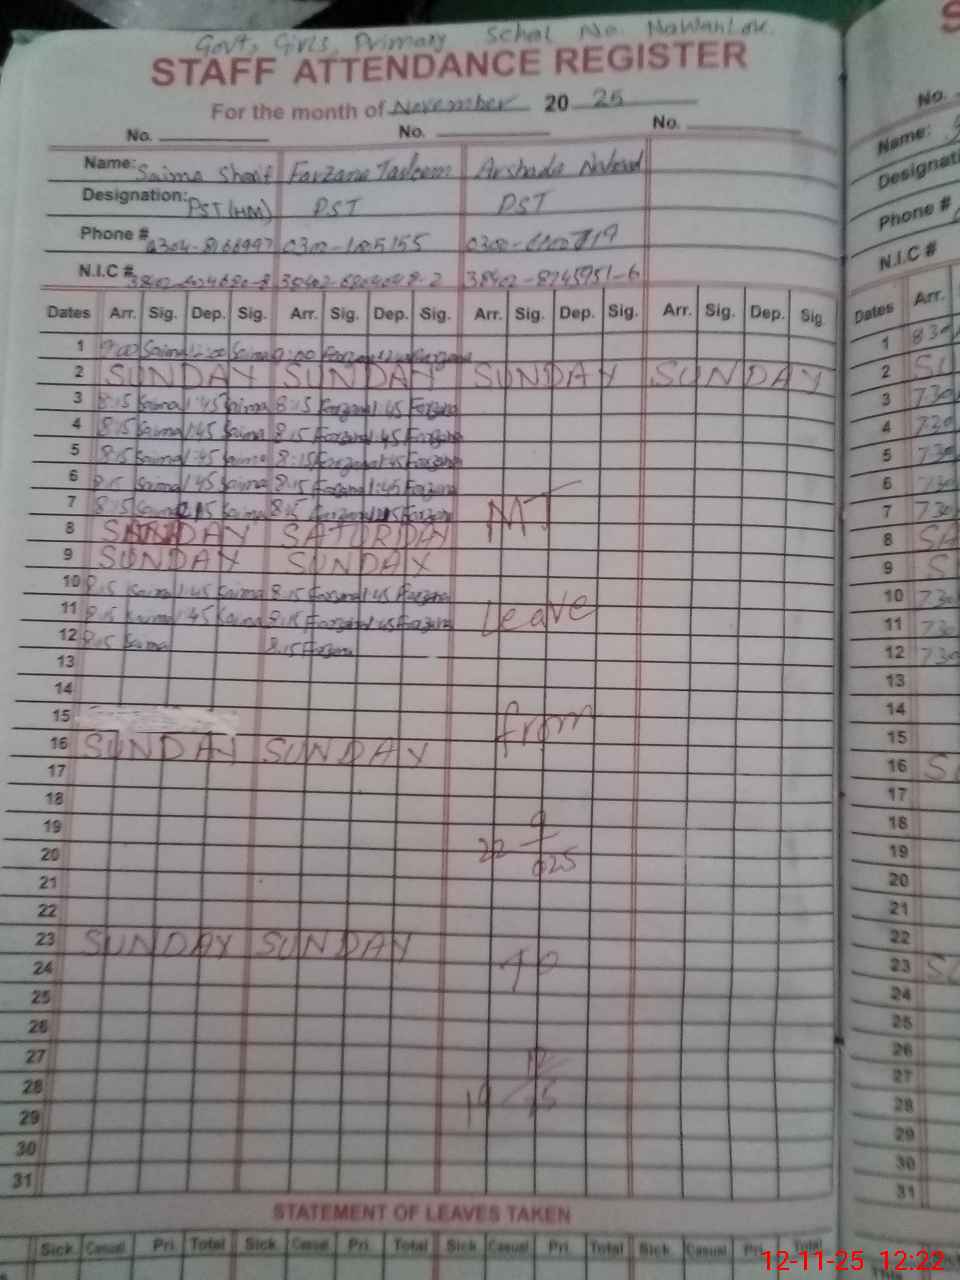 Govt, Girls, Primary School No. Nawanlok.
STAFF ATTENDANCE REGISTER
For the month of November 20 25
No. No. No.
Name: Saima Sharif Farzana Tasleem Arshada
Designation: PST(HM) PST PST
Phone #
N.I.C #
Dates Arr. Sig. Dep. Sig. Arr. Sig. Dep. Sig. Arr. Sig. Dep. Sig. Arr. Sig. Dep. Sig.
1 9:00 Saima 12:00 Saima 9:00
2 SUNDAY SUNDAY SUNDAY SUNDAY
3 8:15 Saima 1:45 Saima 8:15 Farzana 1:45 Farzana
4 8:15 Saima 1:45 Saima 8:15 Farzana 1:45 Farzana
5 8:15 Saima 1:45 Saima 8:15 Farzana 1:45 Farzana
6 8:15 Saima 1:45 Saima 8:15 Farzana 1:45 Farzana
7 8:15 Saima Saima 8:15 Farzana Farzana MT
8 SATURDAY
9 SUNDAY SUNDAY
10 8:15 Saima 1:45 Saima 8:15 Farzana 1:45 Farzana
11 8:15 Saima 1:45 Saima 8:15 Farzana 1:45 Farzana Leave
12 8:15 Saima 8:15 Farzana
13
14
15 from
16 SUNDAY SUNDAY
17
18
19 9
20 22 025
21
22
23 SUNDAY SUNDAY
24 To
25
26
27
28 19
29
30
31
STATEMENT OF LEAVES TAKEN
Sick Casual Pri. Total Sick Casual Pri. Total Sick Casual Pri. Total Sick Casual Pri. Total
S
No.
Name:
Designati
Phone #
N.I.C #
Dates Arr.
1 830
2 SU
3 730
4 730
5 730
6 730
7 730
8 SA
9 S
10 730
11 730
12 730
13
14
15
16 S
17
18
19
20
21
22
23 S
24
25
26
27
28
29
30
31
12-11-25 12:22